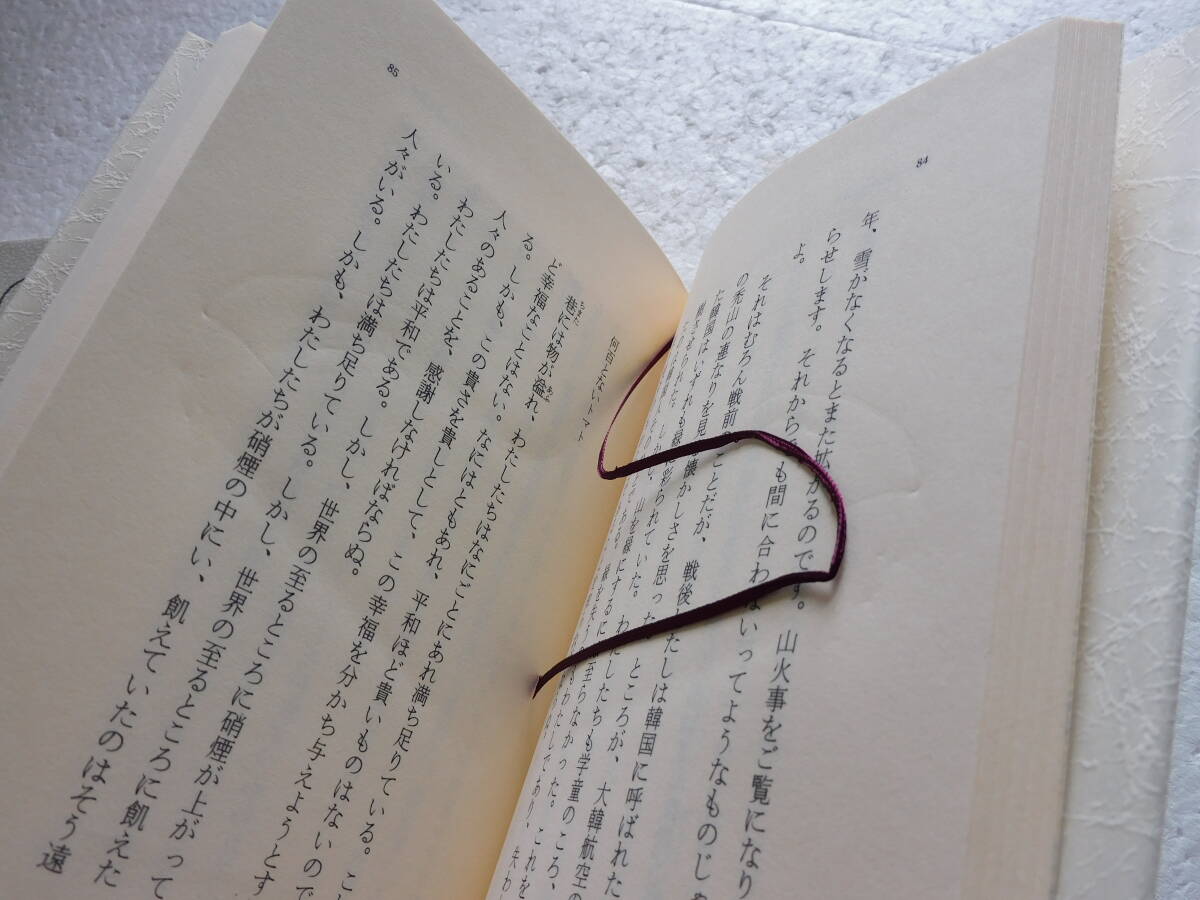 84
年、雪がなくなるとまた拡がるのです。山火事をご覧になり
らせします。それから
も間に合わ
いってようなものじゃ
よ。
それはむろん戦前
ことだが、戦後
たしは韓国に呼ばれた
の禿山の連なりを見
懐かしさを思った
ところが、大韓航空の
た韓国はいずれも緑に彩られていた。
わたしたちも学童のころ、
山を緑にするに
至らなかった。
わたしであり、これを
85
何百とないトマト
巷には物が溢れ、わたしたちはなにごとにあれ満ち足りている。こ
ちまた
あふ
ど幸福なことはない。なにはともあれ、平和ほど貴いものはないので
る。しかも、この貴さを貴しとして、この幸福を分かち与えようとす
人々のあることを、感謝しなければならぬ。
わたしたちは平和である。しかし、世界の至るところに硝煙が上がって
いる。わたしたちは満ち足りている。しかし、世界の至るところに飢えた
人々がいる。しかも、わたしたちが硝煙の中にい、飢えていたのはそう遠